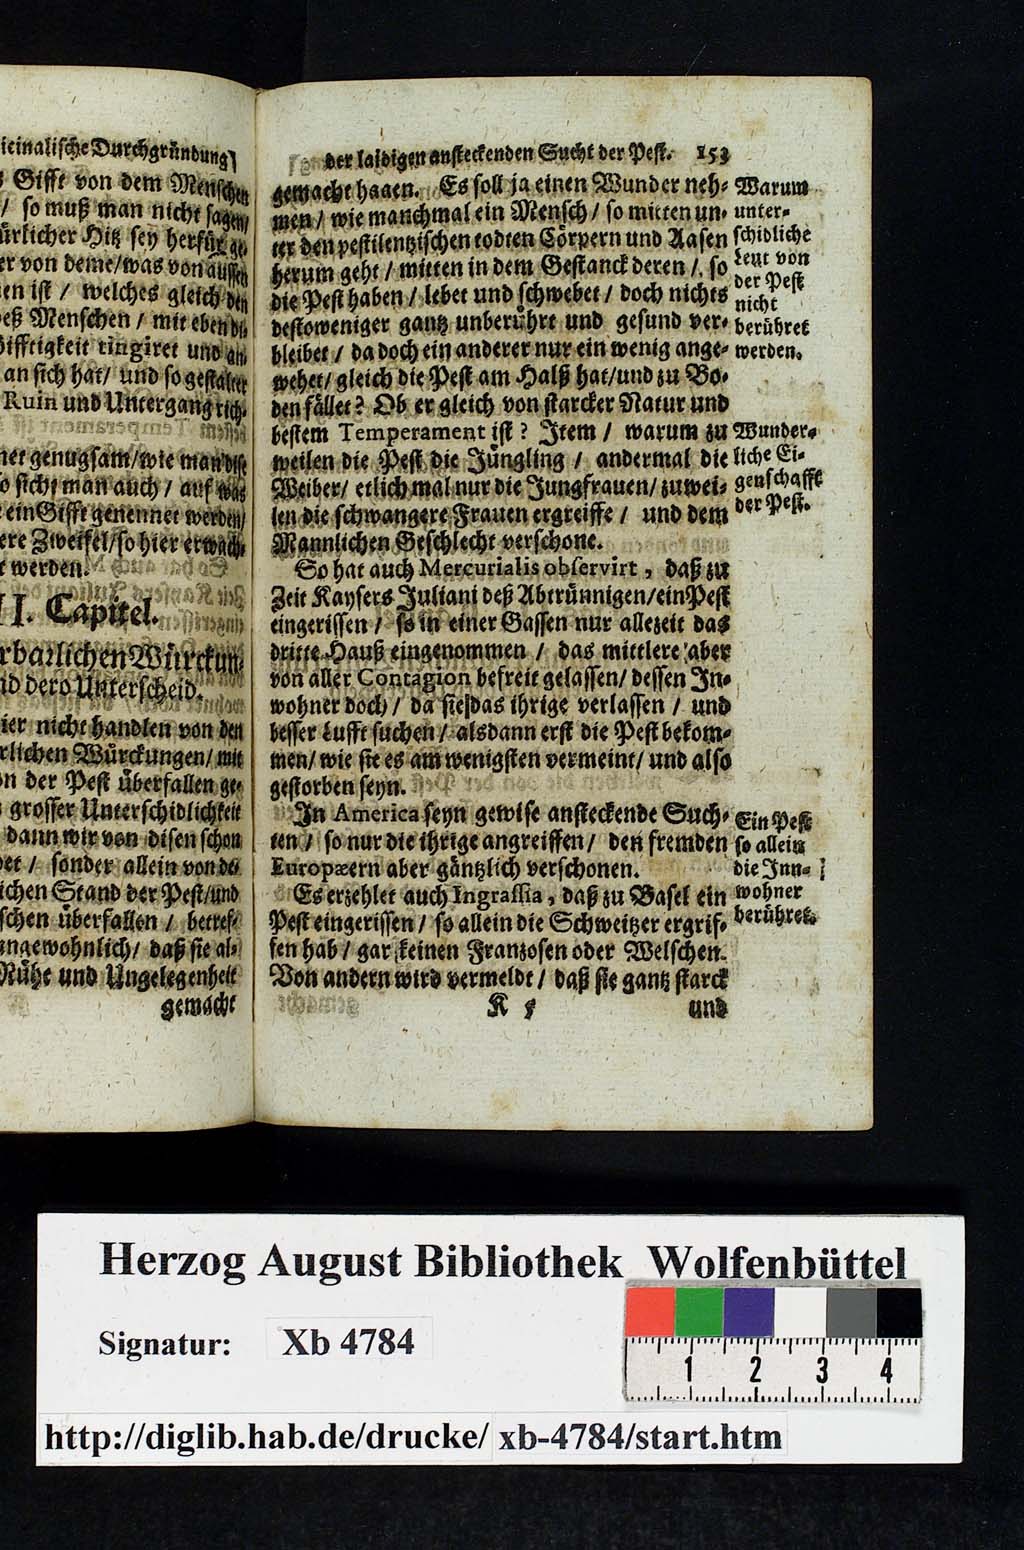 icinalische Durchgründung
Gifft von dem Menschen
/ so muß man nicht sagen/
ürlicher Hitz sey herfür ge-
er von deme/was von aussen
en ist / welches gleich den
eß Menschen / mit eben di-
ifftigkeit tingiret und an
an sich hat/ und so gestalter
Ruin und Untergang rich-
net genugsam/wie man dise
o sicht man auch / auf was
ein Gifft genennet werden/
ere Zweifel/so hier erwach-
t werden.
II. Capitel.
rbarlichen Würckun-
nd dero Unterscheid.
ier nicht handlen von den
rlichen Würckungen/ mit
n der Pest überfallen ge-
grosser Unterschidlichkeit
dann wir von disen schon
et / sonder allein von de-
ichen Stand der Pest/und
schen überfallen / betref-
ngewohnlich/ daß sie al-
Rühe und Ungelegenheit
gemacht
der laidigen ansteckenden Sucht der Pest. 153
gemacht haaen. Es soll ja einen Wunder neh-
men/ wie manchmal ein Mensch/ so mitten un-
ter den pestilentzischen todten Cörpern und Aasen
herum geht / mitten in dem Gestanck deren /. so
die Pest haben / lebet und schwebet / doch nichts
destoweniger gantz unberührt und gesund ver-
bleibet / da doch ein anderer nur ein wenig ange-
wehet/ gleich die Pest am Halß hat/und zu Bo-
den fället? Ob er gleich von starcker Natur und
bestem Temperament ist? Item / warum zu
weilen die Pest die Jüngling / andermal die
Weiber/ etlich mal nur die Jungfrauen/ zuwei-
len die schwangere Frauen ergreiffe / und dem
Mannlichen Geschlecht verschone.
So hat auch Mercurialis observirt, daß zu
Zeit Kaysers Juliani deß Abtrünnigen/ein Pest
eingerissen / so in einer Gassen nur allezeit das
dritte Hauß eingenommen / das mittlere aber
von aller Contagion befreit gelassen/ dessen In-
wohner doch/ da sie das ihrige verlassen / und
besser Lufft suchen/ alsdann erst die Pest bekom-
men/ wie sie es am wenigsten vermeint/ und also
gestorben seyn.
In America seyn gewise ansteckende Such-
ten / so nur die ihrige angreiffen / den fremden
Europæern aber gäntzlich verschonen.
Es erzehlet auch Ingrassia, daß zu Basel ein
Pest eingerissen / so allein die Schweitzer ergrif-
fen hab / gar keinen Franzosen oder Welschen.
Von andern wird vermeldt / daß sie gantz starck
K 5
und
Warum
unter-
schidliche
Leut von
der Pest
nicht
berühret
werden.
Wunder-
liche Ei-
genschafft
der Pest.
Ein Pest
so allein
die Inn-
wohner
berühret.
Herzog August Bibliothek Wolfenbüttel
Signatur: Xb 4784
1 2 3 4
http://diglib.hab.de/drucke/ xb-4784/start.htm